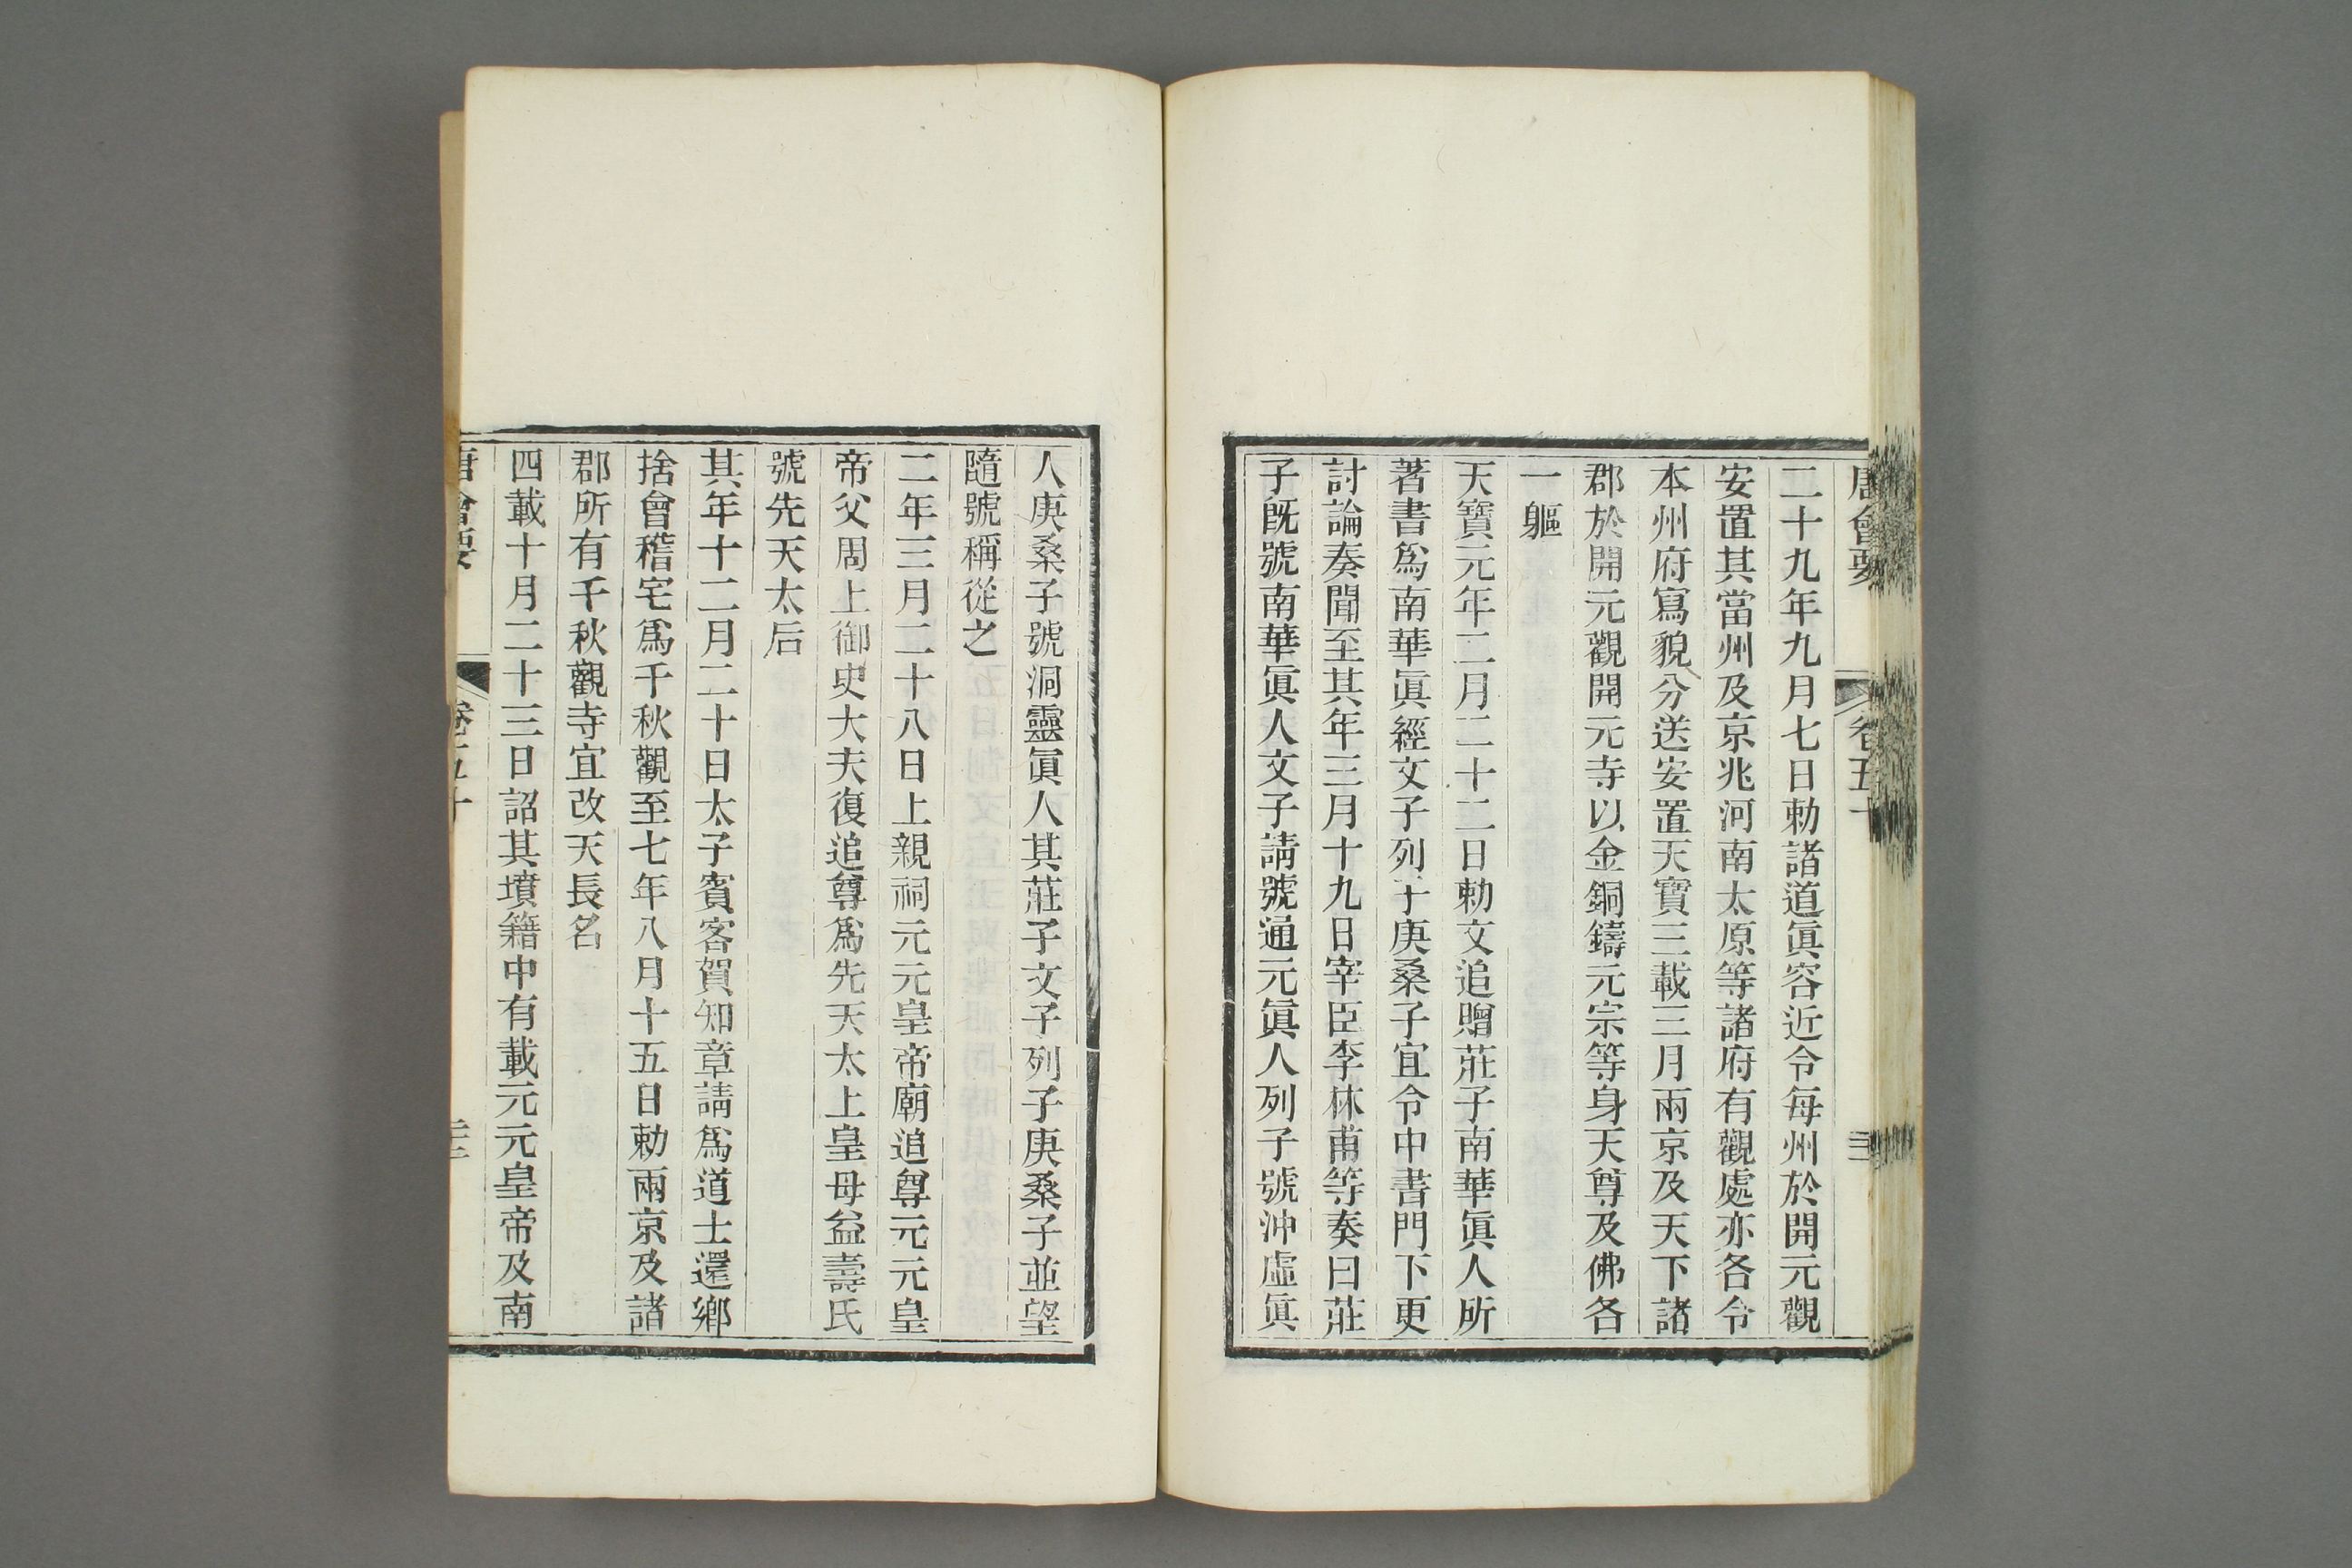 唐會要 卷五十
二十九年九月七日勅諸道眞容近令每州於開元觀
安置其當州及京兆河南太原等諸府有觀處亦各令
本州府寫貌分送安置天寶三載三月兩京及天下諸
郡於開元觀開元寺以金銅鑄元宗等身天尊及佛各
一軀
天寶元年二月二十二日勅文追贈莊子南華眞人所
著書爲南華眞經文子列子庚桑子宜令中書門下更
討論奏聞至其年三月十九日宰臣李林甫等奏曰莊
子旣號南華眞人文子請號通元眞人列子號沖虛眞
人庚桑子號洞靈眞人其莊子文子列子庚桑子並望
隨號稱從之
二年三月二十八日上親祠元元皇帝廟追尊元元皇
帝父周上御史大夫復追尊爲先天太上皇母益壽氏
號先天太后
其年十二月二十日太子賓客賀知章請爲道士還鄉
捨會稽宅爲千秋觀至七年八月十五日勅兩京及諸
郡所有千秋觀寺宜改天長名
四載十月二十三日詔其墳籍中有載元元皇帝及南
唐會要 卷五十